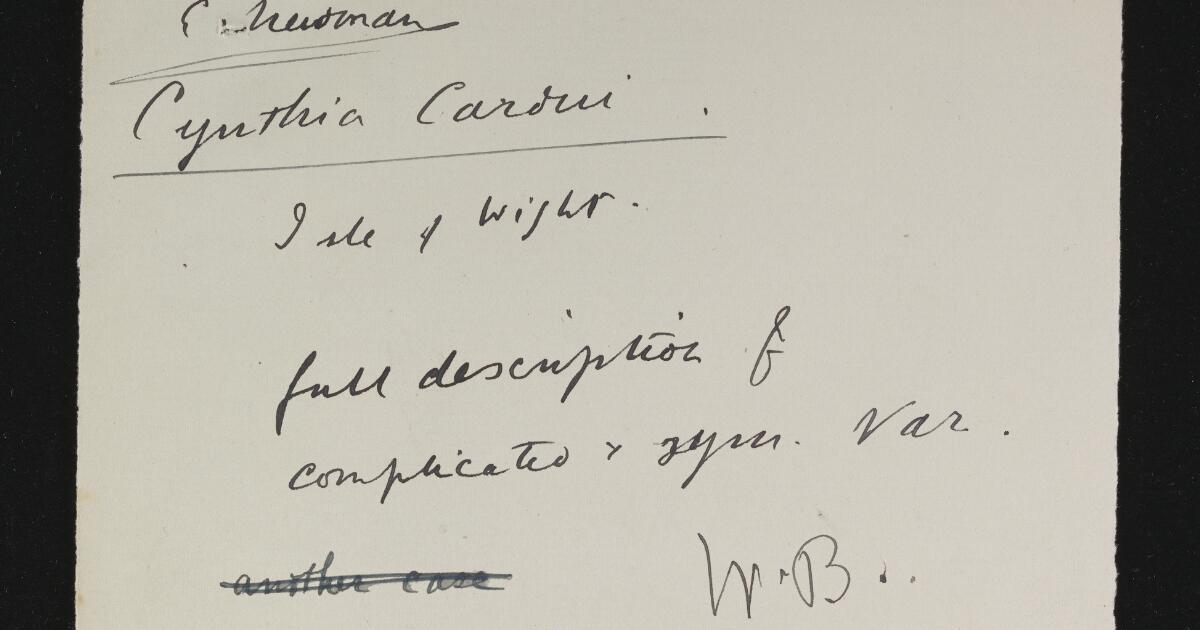 E. Newman
Cynthia Cardui.
Isle of Wight.
full description of
complicated & sym. Var.
another case
W.B..